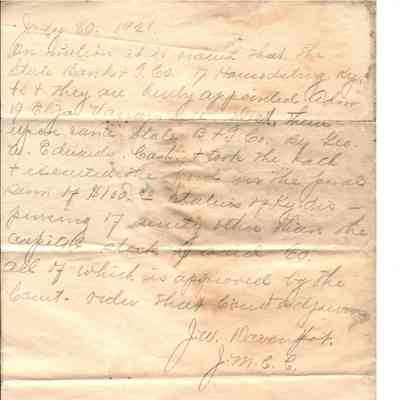 July 30. 1921.
On motion it is that the
State Bank & T. Co. of Harrodsburg Ky.
be & they are hereby appointed Adm
of Eliza
upon came State B. & T. Co. by Geo.
W. Edwards. Cashier & took the oath
& executed the in the penal
sum of $100.00 Statutes of Ky dis-
pensing of surety other than the
capital stock of said Co.
All of which is approved by the
Court. Order that Court adjourn
J.W. Davenport.
J.M.C.C.